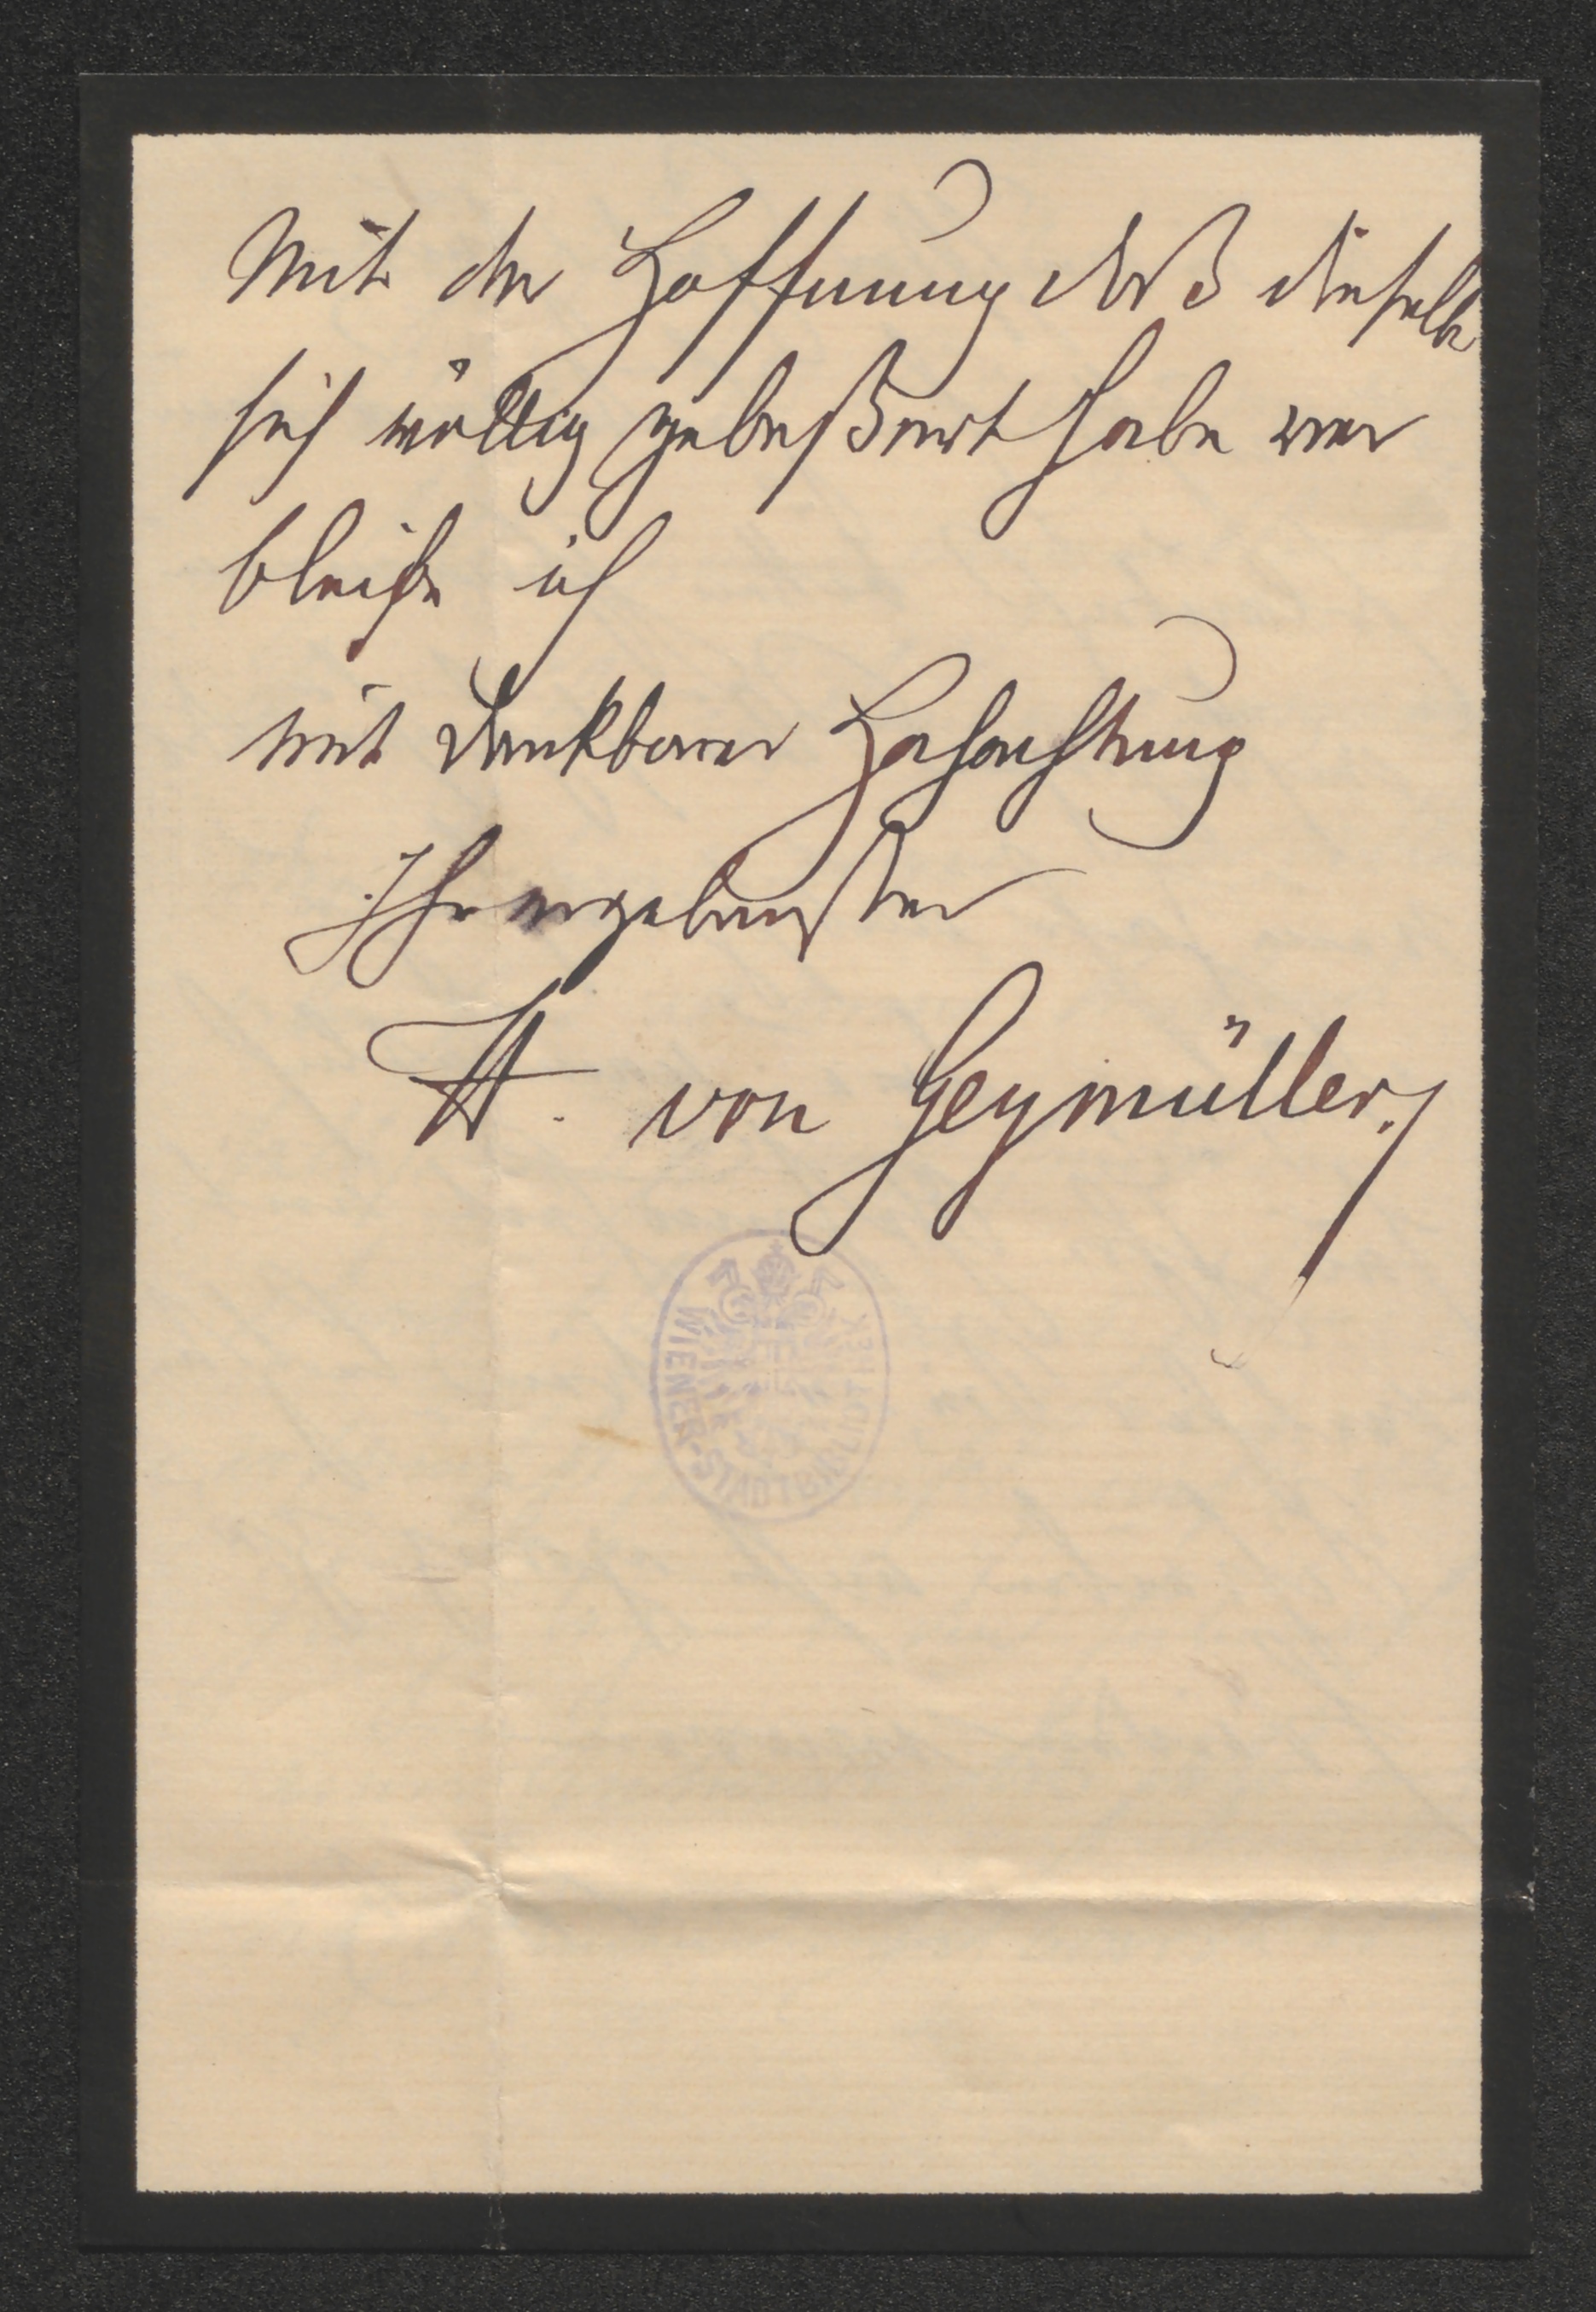 Mit der Hoffnung daß dieselbe
sich völlig gebeßert habe ver
bleibe ich
mit dankbarer Hochachtung
Ihr ergebenster
H. von Geymüller.
WIENER-STADTBIBLIOTHEK